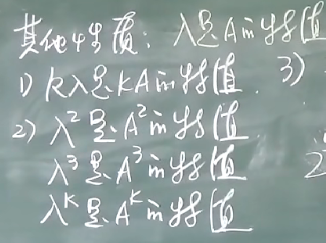 其他性质：λ是A的特值
1) kλ是kA的特值.
2) λ²是A²的特值.
λ³是A³的特值
λᵏ是Aᵏ的特值
3)
2